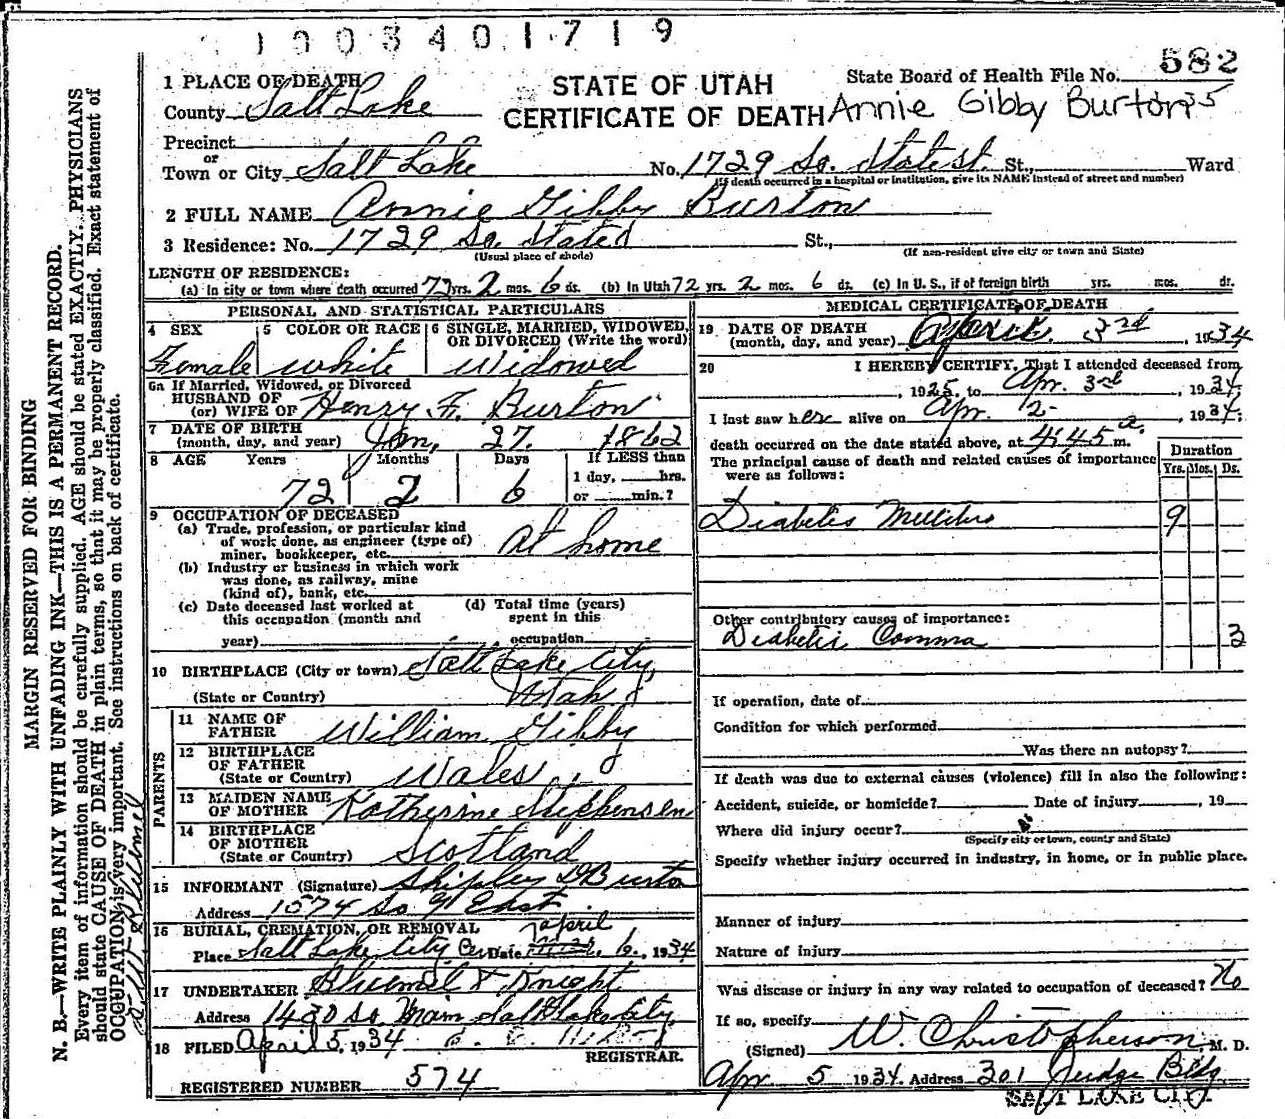 1003401719
582
STATE OF UTAH
CERTIFICATE OF DEATH
State Board of Health File No.
Annie Gibby Burton
35
1 PLACE OF DEATH
County Salt Lake
Precinct
or
Town or City Salt Lake No. 1729 So. State st. St., Ward
(If death occurred in a hospital or institution, give its NAME instead of street and number)
2 FULL NAME Annie Gibby Burton
3 Residence: No. 1729 So. State St.,
(Usual place of abode) (If non-resident give city or town and State)
LENGTH OF RESIDENCE:
(a) In city or town where death occurred 72 yrs. 2 mos. 6 ds. (b) In Utah 72 yrs. 2 mos. 6 ds. (c) In U. S., if of foreign birth yrs. mos. ds.
PERSONAL AND STATISTICAL PARTICULARS
4 SEX 5 COLOR OR RACE 6 SINGLE, MARRIED, WIDOWED, OR DIVORCED (Write the word)
Female white Widowed
6a If Married, Widowed, or Divorced
HUSBAND OF
(or) WIFE OF Henry F. Burton
7 DATE OF BIRTH
(month, day, and year) Jan, 27. 1862
8 AGE Years Months Days If LESS than
1 day, hrs.
72 2 6 or min.?
9 OCCUPATION OF DECEASED
(a) Trade, profession, or particular kind
of work done, as engineer (type of)
miner, bookkeeper, etc. At home
(b) Industry or business in which work
was done, as railway, mine
(kind of), bank, etc.
(c) Date deceased last worked at
this occupation (month and
year)
(d) Total time (years)
spent in this
occupation
10 BIRTHPLACE (City or town) Salt Lake City,
(State or Country) Utah
PARENTS
11 NAME OF
FATHER William Gibby
12 BIRTHPLACE
OF FATHER
(State or Country) Wales
13 MAIDEN NAME
OF MOTHER Katherine Stephensen
14 BIRTHPLACE
OF MOTHER
(State or Country) Scotland
15 INFORMANT (Signature) Shipley D Burton
Address 1574 So 9th East
16 BURIAL, CREMATION, OR REMOVAL
april
Place Salt Lake City Cem Date 6, 1934
17 UNDERTAKER Bluemel & Knight
Address 1430 So Main Salt Lake City
18 FILED April 5, 1934
REGISTRAR.
REGISTERED NUMBER 574
MEDICAL CERTIFICATE OF DEATH
19 DATE OF DEATH
(month, day, and year) April 3rd, 1934
20 I HEREBY CERTIFY, That I attended deceased from
, 1925, to Apr. 3rd, 1934
I last saw her alive on Apr. 2, 1934;
death occurred on the date stated above, at 4:45 a. m.
The principal cause of death and related causes of importance
were as follows:
Duration
Yrs. Mos. Ds.
Diabetis Mellitus 9
Other contributory causes of importance:
Diabetis Comma 3
If operation, date of
Condition for which performed
Was there an autopsy?
If death was due to external causes (violence) fill in also the following:
Accident, suicide, or homicide? Date of injury , 19
Where did injury occur?
(Specify city or town, county and State)
Specify whether injury occurred in industry, in home, or in public place.
Manner of injury
Nature of injury
Was disease or injury in any way related to occupation of deceased? No
If so, specify
(Signed) W. Christopherson, M. D.
Apr 5 1934. Address 301 Judge Bldg
SALT LAKE CITY.
MARGIN RESERVED FOR BINDING
N. B.—WRITE PLAINLY WITH UNFADING INK—THIS IS A PERMANENT RECORD.
Every item of information should be carefully supplied. AGE should be stated EXACTLY. PHYSICIANS
should state CAUSE OF DEATH in plain terms, so that it may be properly classified. Exact statement of
OCCUPATION is very important. See instructions on back of certificate.